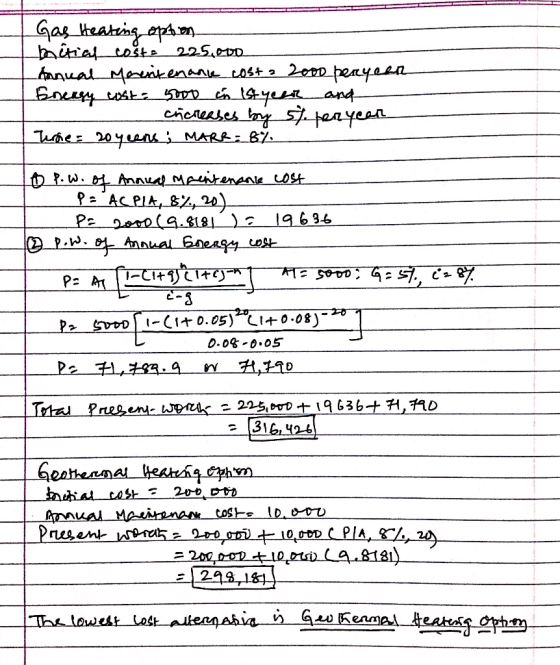 Gas Heating option
Initial cost = 225,000
Annual Maintenance cost = 2000 per year
Energy cost = 5000 in 1st year and
increases by 5% per year
Time = 20 years ; MARR = 8%
① P.W. of Annual Maintenance cost
P = A(P/A, 8%, 20)
P = 2000(9.8181) = 19636
② P.W. of Annual Energy cost
P = A1 [1-(1+g)^n (1+i)^-n / i-g] A1 = 5000: G = 5%, i = 8%
P = 5000 [1-(1+0.05)^20 (1+0.08)^-20 / 0.08-0.05]
P = 71,789.9 or 71,790
Total Present-worth = 225,000 + 19636 + 71,790
= 316,426
Geothermal Heating option
Initial cost = 200,000
Annual Maintenance cost = 10,000
Present worth = 200,000 + 10,000 (P/A, 8%, 20)
= 200,000 + 10,000 (9.8181)
= 298,181
The lowest cost alternative is Geothermal Heating option